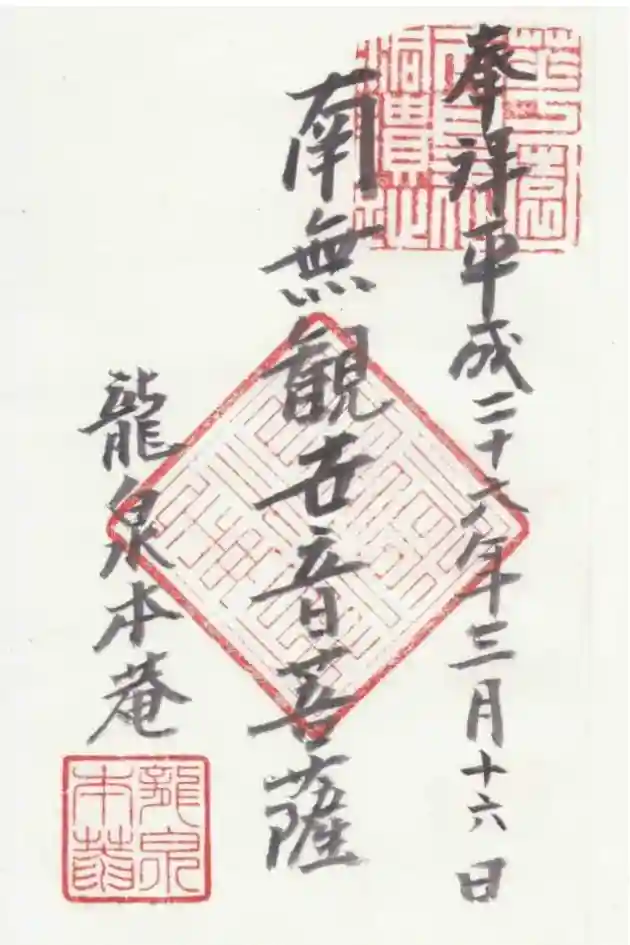 奉拝平成二十六年三月十六日
南無観世音菩薩
龍泉本菴
龍泉
本菴